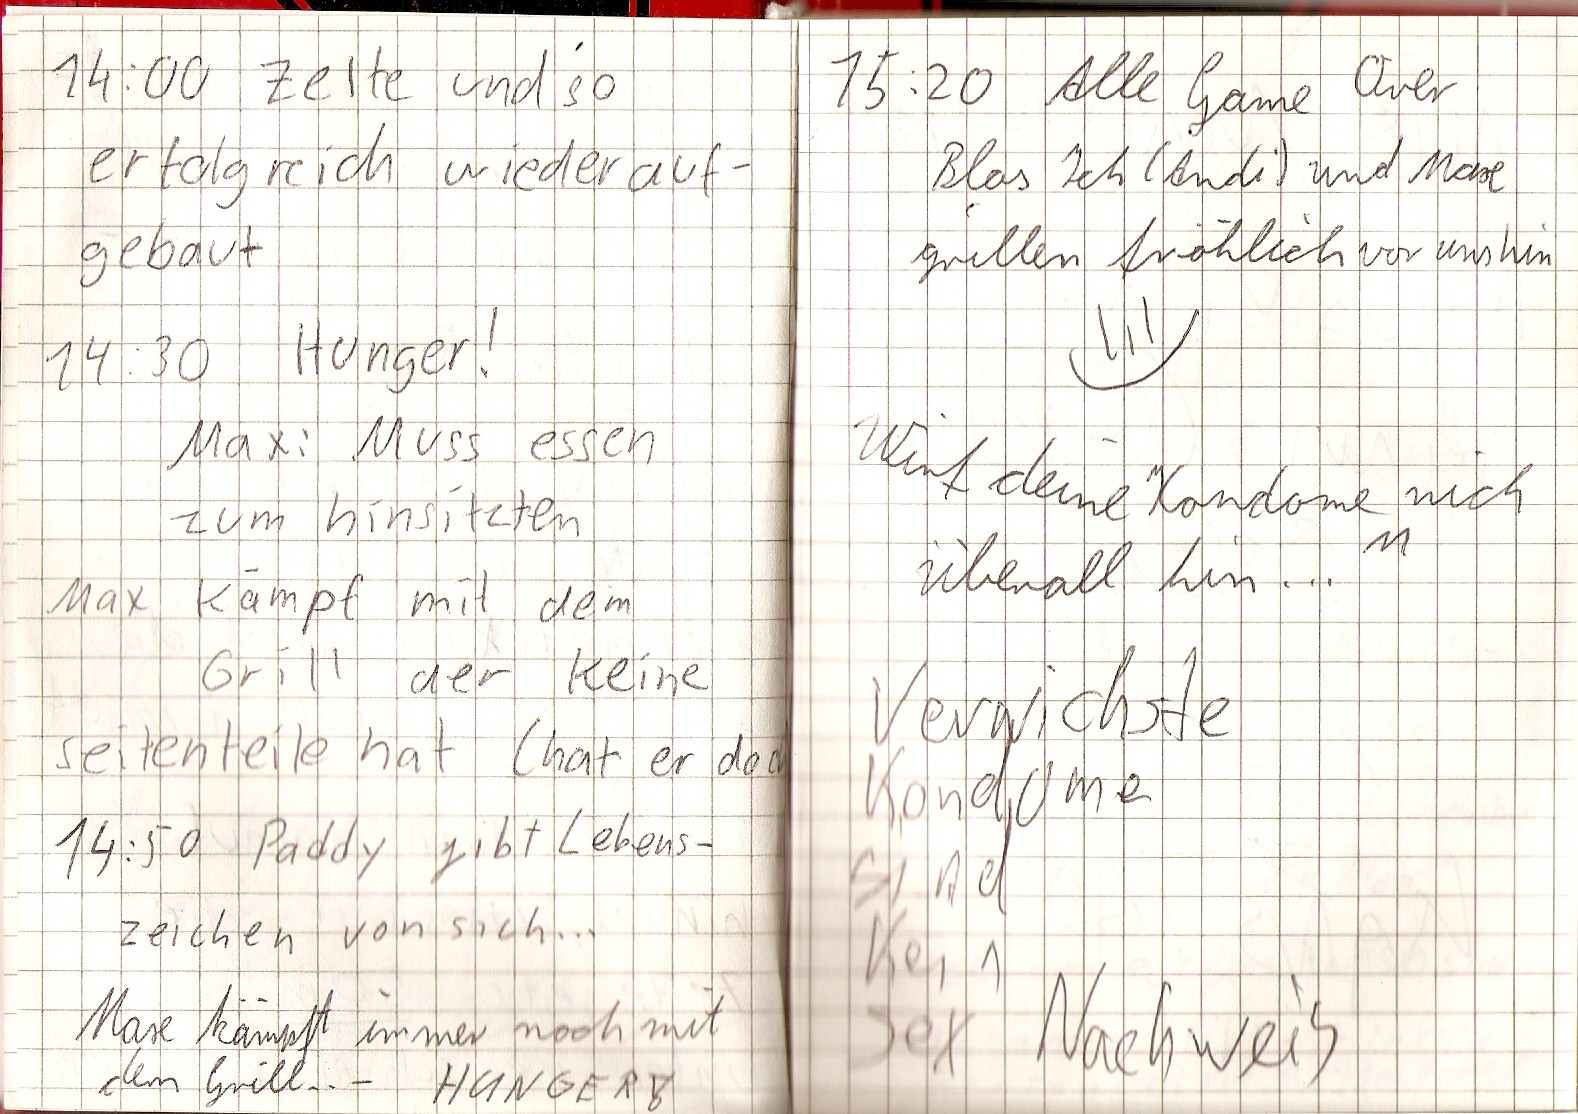 14:00 Zelte und so
erfolgreich wiederauf-
gebaut
14:30 Hunger!
Max: Muss essen
zum hinsitzten
Max Kämpf mit dem
Grill der keine
seitenteile hat (hat er doch
14:50 Paddy gibt Lebens-
zeichen von sich...
Max kämpft immer noch mit
dem Grill... - HUNGER
15:20 Alle Game Over
Blos Ich (Andi) und Max
grillen fröhlich vor uns hin
Wirf deine Kondome nich
überall hin... "
Verwichste
Kondome
sind
Kein
Sex Nachweis